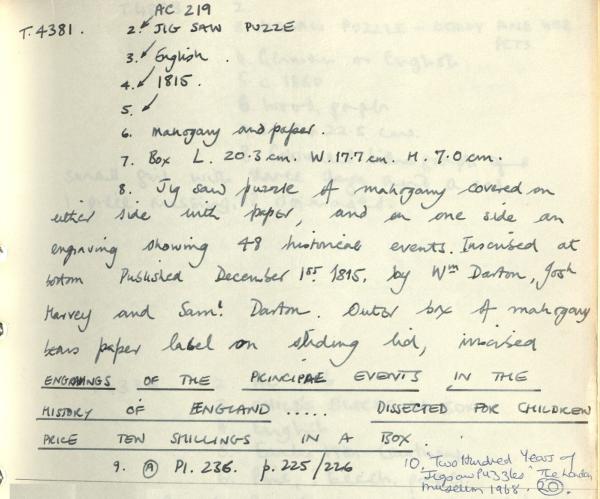 AC 219
T.4381. 2. JIG SAW PUZZLE
3. English.
4. 1815.
5.
6. Mahogany and paper.
7. Box L. 20.3 cm. W. 17.7 cm. H. 7.0 cm.
8. Jig saw puzzle of mahogany covered on
either side with paper, and on one side an
engraving showing 48 historical events. Inscribed at
bottom Published December 1st. 1815. by Wm Darton, Josh
Harvey and Saml. Darton. Outer box of mahogany
bears paper label on sliding lid, inscribed
ENGRAVINGS OF THE PRINCIPAL EVENTS IN THE
HISTORY OF ENGLAND...... DISSECTED FOR CHILDREN
PRICE TEN SHILLINGS IN A BOX.
9. A Pl. 236. p.225/226
10. "Two Hundred Years of
Jigsaw Puzzles" The London
Museum 1968. 20.